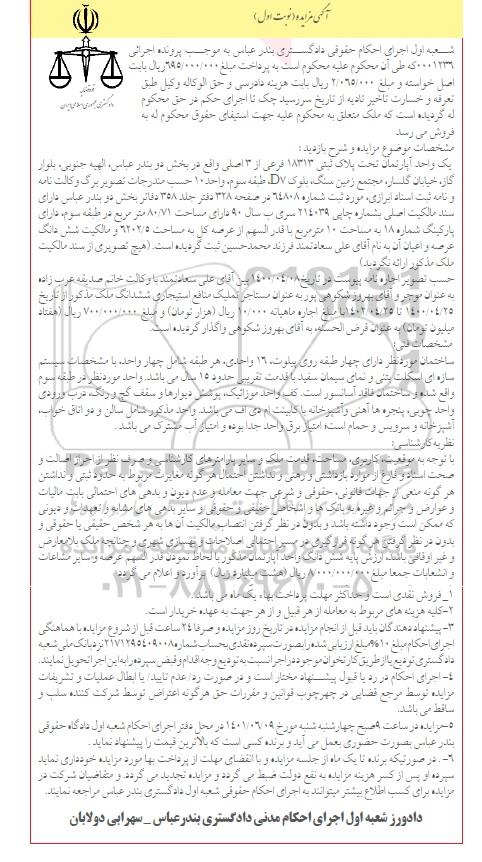 آگهی مزایده (نوبت اول)
شعبه اول اجرای احکام حقوقی دادگستری بندر عباس به موجب پرونده اجرائی
۰۰۰۱۲۳۶ که طی آن محکوم علیه محکوم است به پرداخت مبلغ ۶۹۵/۰۰۰/۰۰۰ ریال بابت
اصل خواسته و مبلغ ۲/۰۶۵/۰۰۰ ریال بابت هزینه دادرسی و حق الوکاله وکیل طبق
تعرفه و خسارت تاخیر تادیه از تاریخ سررسید چک تا اجرای حکم در حق محکوم
له گردیده است که ملک متعلق به محکوم علیه جهت استیفای حقوق محکوم له به
فروش می رسد
مشخصات موضوع مزایده و شرح بازدید:
یک واحد آپارتمان تحت پلاک ثبتی ۱۸۳۱۳ فرعی از ۳ اصلی واقع در بخش دو بندر عباس، الهیه جنوبی، بلوار
گاز، خیابان گلسار، مجتمع زمین سنگ، بلوک D۷، طبقه سوم، واحد ۱۰ حسب مندرجات تصویر برگ وکالت نامه
و نامه ثبت اسناد ابرازی، مورد ثبت شماره ۶۴۸۰۸ در صفحه ۳۲۸ دفتر جلد ۳۵۸ دفاتر بخش دو بندر عباس دارای
سند مالکیت اصلی بشماره چاپی ۲۱۴۰۳۹ سری ب سال ۹۰ دارای مساحت ۸۰/۷۱ متر مربع در طبقه سوم، دارای
پارکینگ شماره ۱۸ به مساحت ۱۰ مترمربع با قدر السهم از عرصه کل به مساحت ۶۲۰۲/۵ و مالکیت شش دانگ
عرصه و اعیان آن به نام آقای علی سعادتمند فرزند محمدحسین ثبت گردیده است. (هیچ تصویری از سند مالکیت
ملک مذکور ارائه نگردید)
حسب تصویر اجاره نامه پیوست در تاریخ ۱۴۰۰/۰۴/۰۸ بین آقای علی سعادتمند با وکالت خانم صدیقه عرب زاده
به عنوان موجر و آقای بهروز شکوهی پور به عنوان مستاجر تملیک منافع استیجاری ششدانگ ملک مذکور از تاریخ
۱۴۰۰/۰۴/۲۵ تا ۱۴۰۲/۰۴/۲۵ با مبلغ اجاره ماهیانه ۱۰/۰۰۰ ریال (هزار تومان) و مبلغ ۷۰۰/۰۰۰/۰۰۰ ریال (هفتاد
میلیون تومان) به عنوان قرض الحسنه، به آقای بهروز شکوهی واگذار گردیده است.
مشخصات فنی:
ساختمان موردنظر دارای چهار طبقه روی پیلوت، ۱۶ واحدی، هر طبقه شامل چهار واحد، با مشخصات سیستم
سازه ای اسکلت بتنی و نمای سیمان سفید با قدمت تقریبی حدود ۱۵ سال می باشد. واحد موردنظر در طبقه سوم
واقع شده و ساختمان فاقد آسانسور است. کف واحد موزائیک، پوشش دیوارها و سقف گچ و رنگ، درب ورودی
واحد چوبی، پنجره ها آهنی و آشپزخانه با کابینت ام دی اف می باشد. واحد مذکور شامل سالن و دو اتاق خواب،
آشپزخانه و سرویس و حمام است؛ امتیاز برق واحد جدا بوده و امتیاز آب مشترک می باشد.
نظریه کارشناسی:
با توجه به موقعیت، کاربری، مساحت، قدمت ملک و سایر پارامترهای کارشناسی و صرف نظر از احراز اصالت و
صحت اسناد و فارغ از موارد بازداشتی و رهنی و نداشتن احتمال هر گونه مغایرت مربوط به حدود ثبتی و نداشتن
هر گونه منعی از جهات قانونی، حقوقی و شرعی جهت معامله و عدم دیون و بدهی های احتمالی بابت مالیات
و عوارض و جرائم و غیره به بانک ها و اشخاص حقیقی و حقوقی و سایر بدهی های مشابه و تعهدات و دیونی
که ممکن است وجود داشته باشد و بدون در نظر گرفتن انتصاب مالکیت آن ها به هر شخص حقیقی یا حقوقی و
بدون در نظر گرفتن هر گونه قرارگیری در مسیر احتمالی اصلاحات و بهسازی شهری و چنانچه ملک بلامعارض
و غیر اوقافی باشد، ارزش پایه شش دانگ واحد آپارتمان مذکور با لحاظ نمودن قدر السهم عرصه و سایر مشاعات
و انشعابات جمعا مبلغ ۸/۰۰۰/۰۰۰/۰۰۰ ریال (هشت میلیارد ریال) برآورد و اعلام می گردد
۱_ فروش نقدی است و حداکثر مهلت پرداخت بهاء یک ماه می باشد.
۲-کلیه هزینه های مربوط به معامله از هر قبیل و از هر جهت به عهده خریدار است.
۳- پیشنهاد دهندگان باید قبل از انجام مزایده در تاریخ روز مزایده و صرفا ۲۴ ساعت قبل از شروع مزایده با هماهنگی
اجرای احکام مبلغ ۱۰% مبلغ ارزیابی شده را بصورت سپرده نقدی بحساب شماره ۲۱۷۱۲۹۵۴۰۹۰۰۸ نزد بانک ملی شعبه
دادگستری تودیع یا از طریق کارتخوان موجود در اجرا نسبت به تودیع وجه اقدام و قبض سپرده را به این اجرا تحویل نمایند.
۴- اجرای احکام در رد یا قبول پیشنهاد مختار است و در صورت رد/ عدم تایید/ یا ابطال عملیات و تشریفات
مزایده توسط مرجع قضایی در چهرچوب قوانین و مقررات حق هرگونه اعتراض توسط شرکت کننده سلب و
ساقط می باشد.
۵-مزایده در ساعت ۹ صبح چهارشنبه شنبه مورخ ۱۴۰۱/۰۶/۰۹ در محل دفتر اجرای احکام شعبه اول دادگاه حقوقی
بندر عباس بصورت حضوری بعمل می آید و برنده کسی است که بالاترین قیمت را پیشنهاد نماید.
۶- . در صورتیکه برنده تا یک ماه از جلسه مزایده و با انقضای مهلت از پرداخت بها مورد مزایده خودداری نماید
سپرده او پس از کسر هزینه مزایده به نفع دولت ضبط می گردد و مزایده تجدید می گردد. و متقاضیان شرکت در
مزایده برای کسب اطلاع بیشتر میتوانند به اجرای احکام حقوقی شعبه اول دادگستری بندر عباس مراجعه نمایند.
دادورز شعبه اول اجرای احکام مدنی دادگستری بندرعباس _ سهرابی دولابان